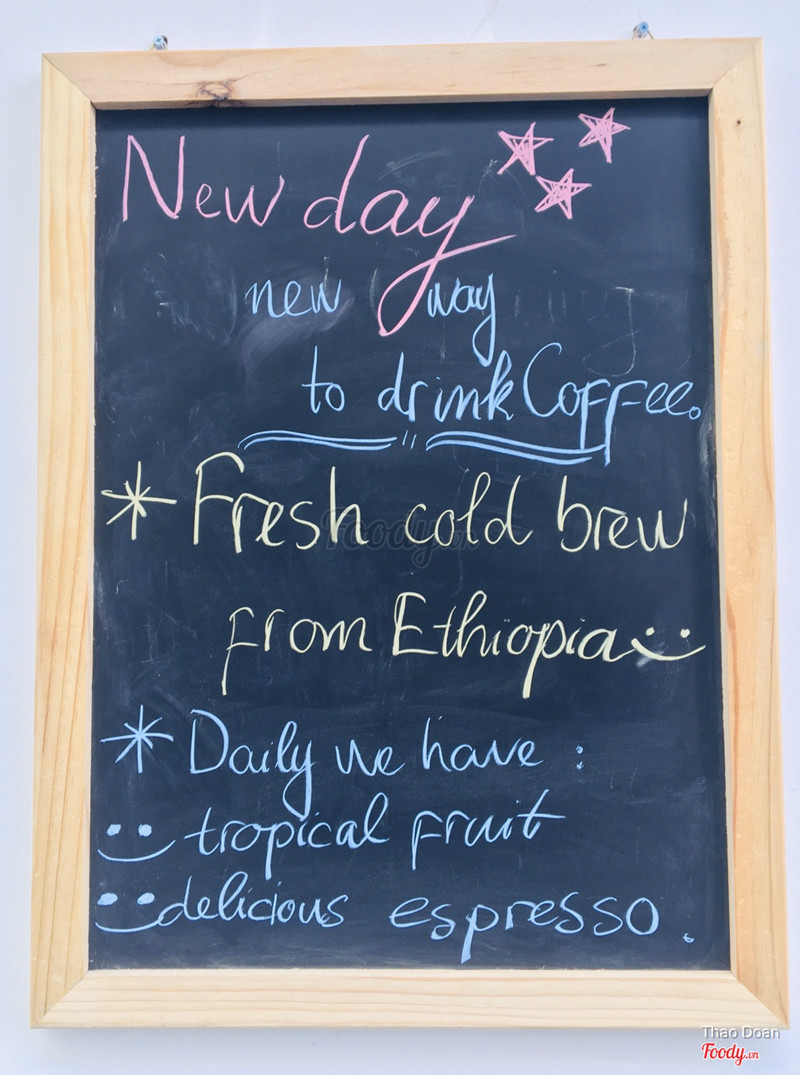 New day
new way
to drink Coffee.
* Fresh cold brew
from Ethiopia
* Daily we have :
tropical fruit
delicious espresso.
Foody.vn
Thao Doan
Foody.vn